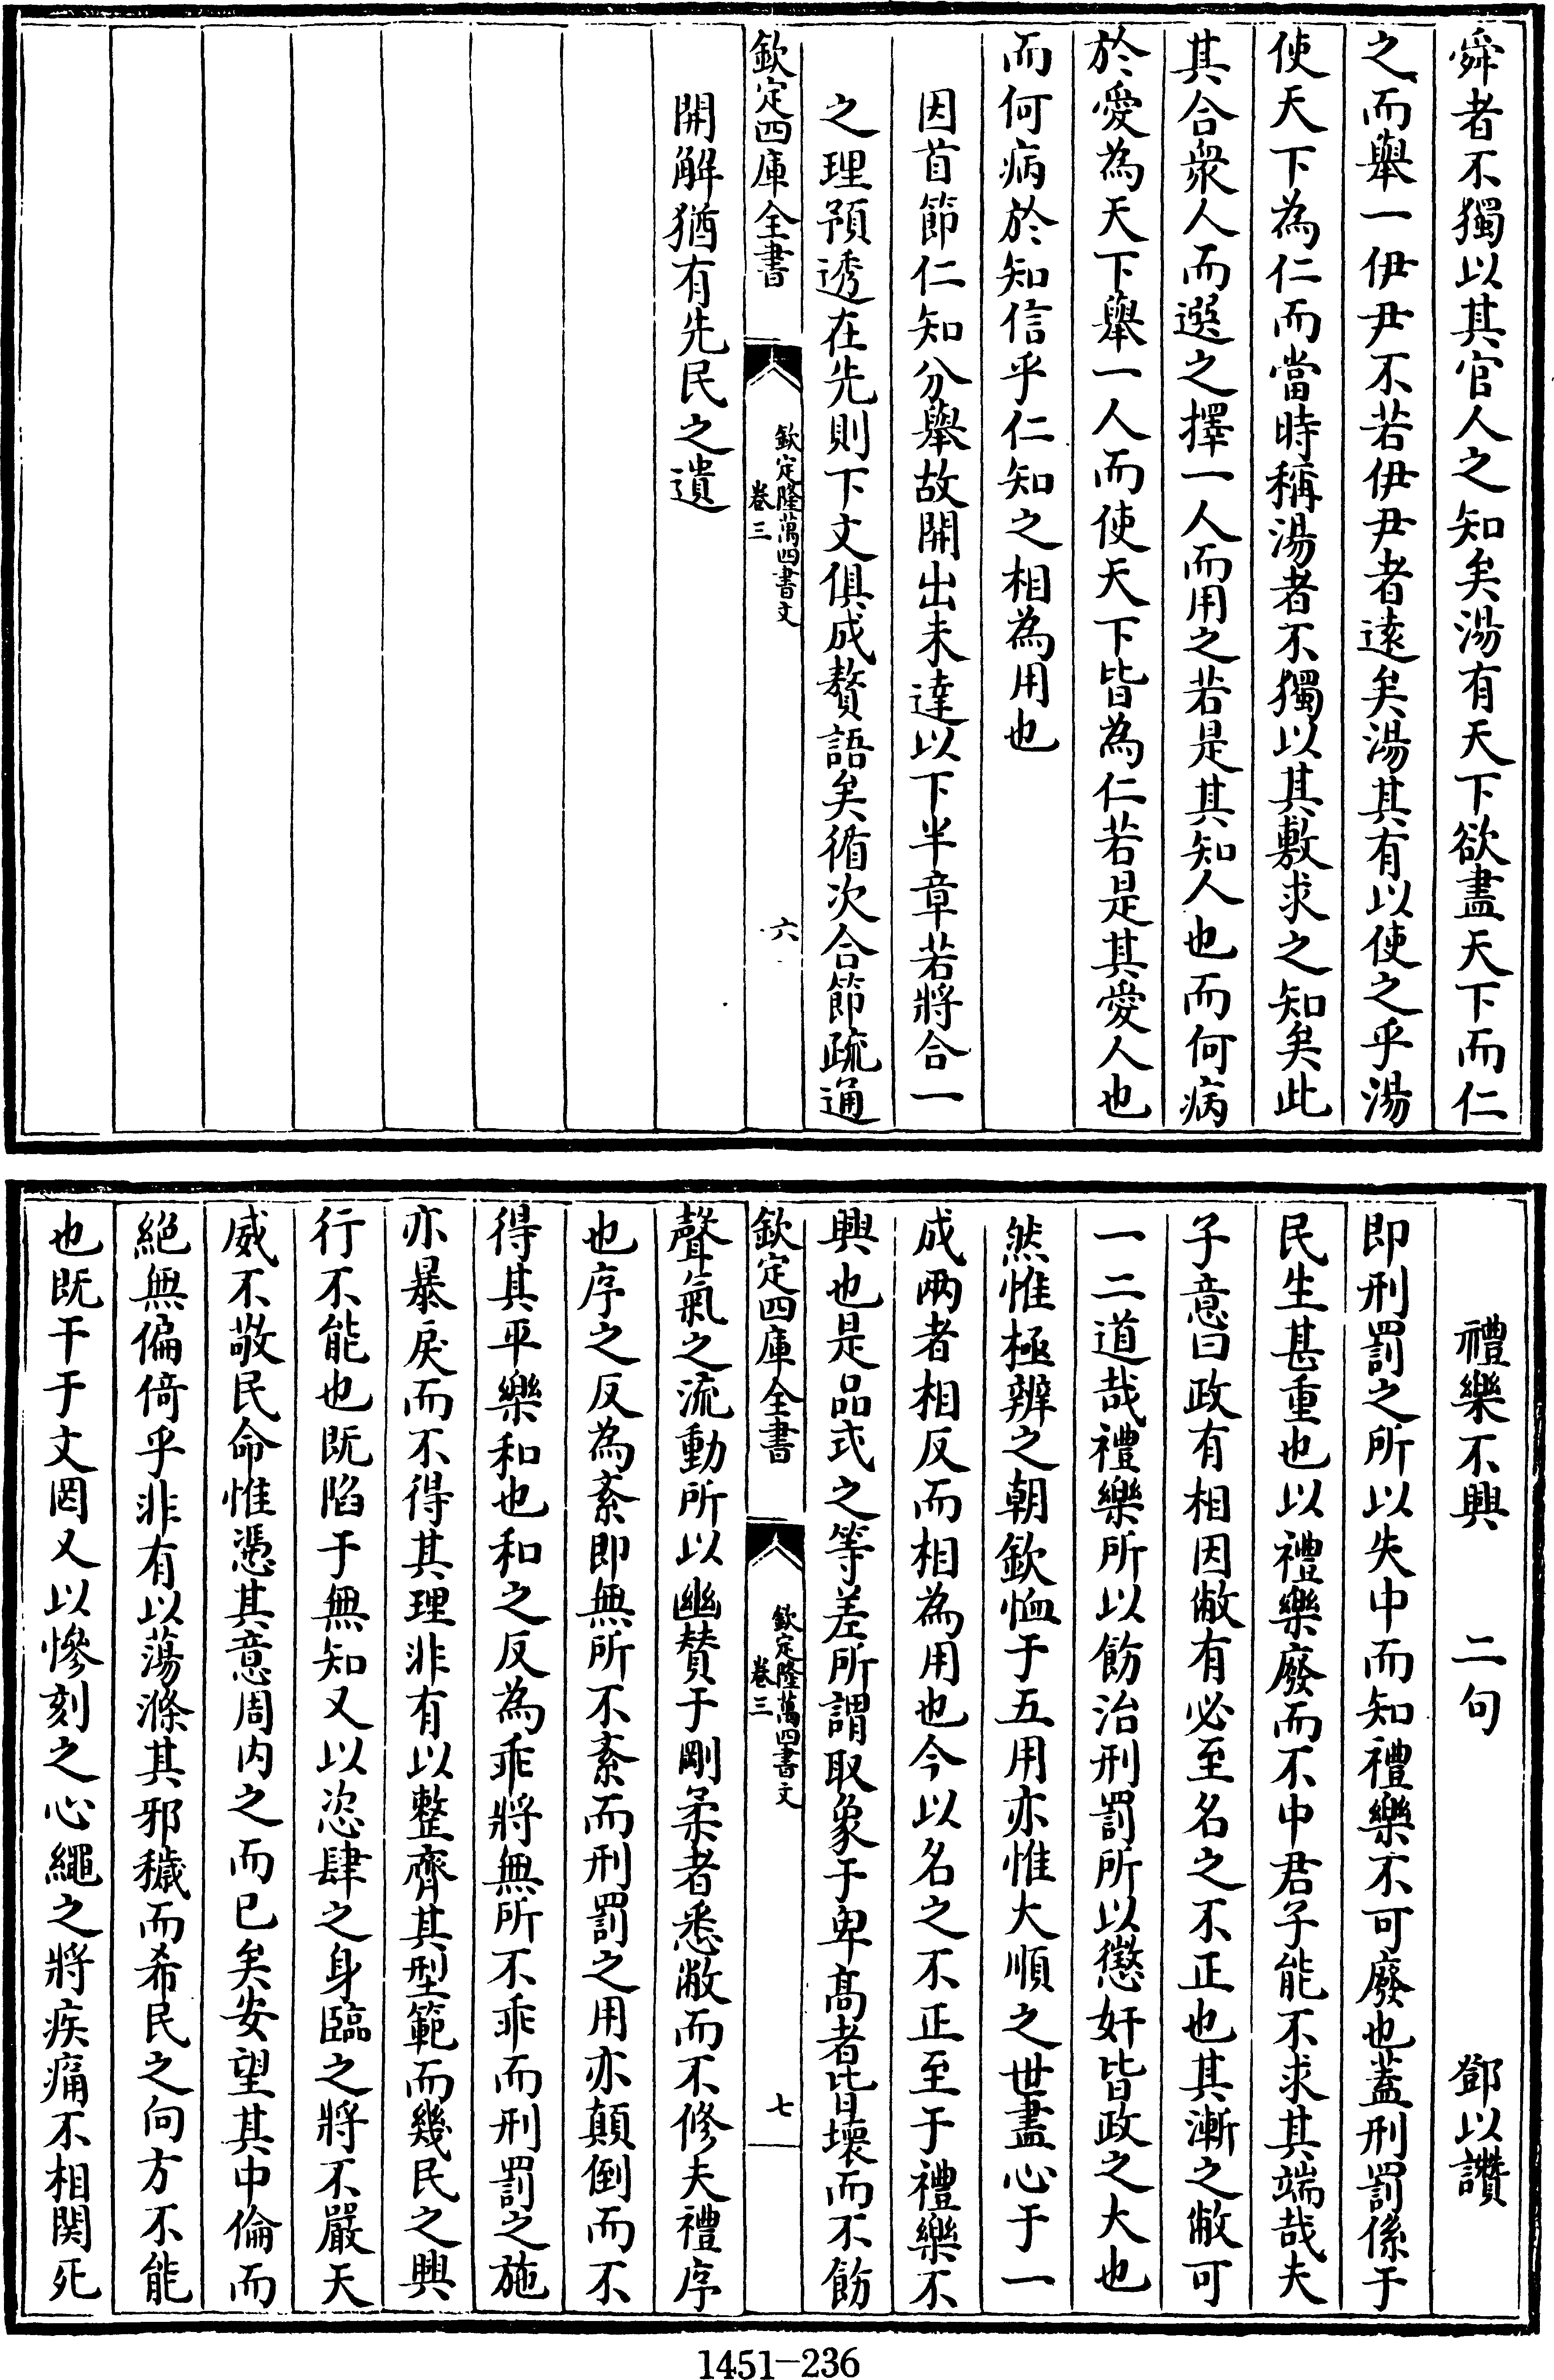 舜者不獨以其官人之知矣湯有天下欲盡天下而仁
之而舉一伊尹不若伊尹者遠矣湯其有以使之乎湯
使天下為仁而當時稱湯者不獨以其敷求之知矣此
其合衆人而選之擇一人而用之若是其知人也而何病
於愛為天下舉一人而使天下皆為仁若是其愛人也
而何病於知信乎仁知之相為用也
因首節仁知分舉故開出未達以下半章若將合一
之理預透在先則下文俱成贅語矣循次合節疏通
欽定四庫全書
欽定隆萬四書文
卷三
六
開解猶有先民之遺
禮樂不興 二句 鄧以讚
即刑罰之所以失中而知禮樂不可廢也蓋刑罰係于
民生甚重也以禮樂廢而不中君子能不求其端哉夫
子意曰政有相因敝有必至名之不正也其漸之敝可
一二道哉禮樂所以飭治刑罰所以懲奸皆政之大也
然惟極辨之朝欽恤于五用亦惟大順之世盡心于一
成兩者相反而相為用也今以名之不正至于禮樂不
興也是品式之等差所謂取象于卑高者皆壞而不飭
欽定四庫全書
欽定隆萬四書文
卷三
七
聲氣之流動所以幽賛于剛柔者悉敝而不修夫禮序
也序之反為紊即無所不紊而刑罰之用亦顛倒而不
得其平樂和也和之反為乖將無所不乖而刑罰之施
亦暴戾而不得其理非有以整齊其型範而幾民之興
行不能也既陷于無知又以恣肆之身臨之將不嚴天
威不敬民命惟憑其意周内之而已矣安望其中倫而
絕無偏倚乎非有以蕩滌其邪穢而希民之向方不能
也既干于文罔又以慘刻之心繩之將疾痛不相関死
1451-236